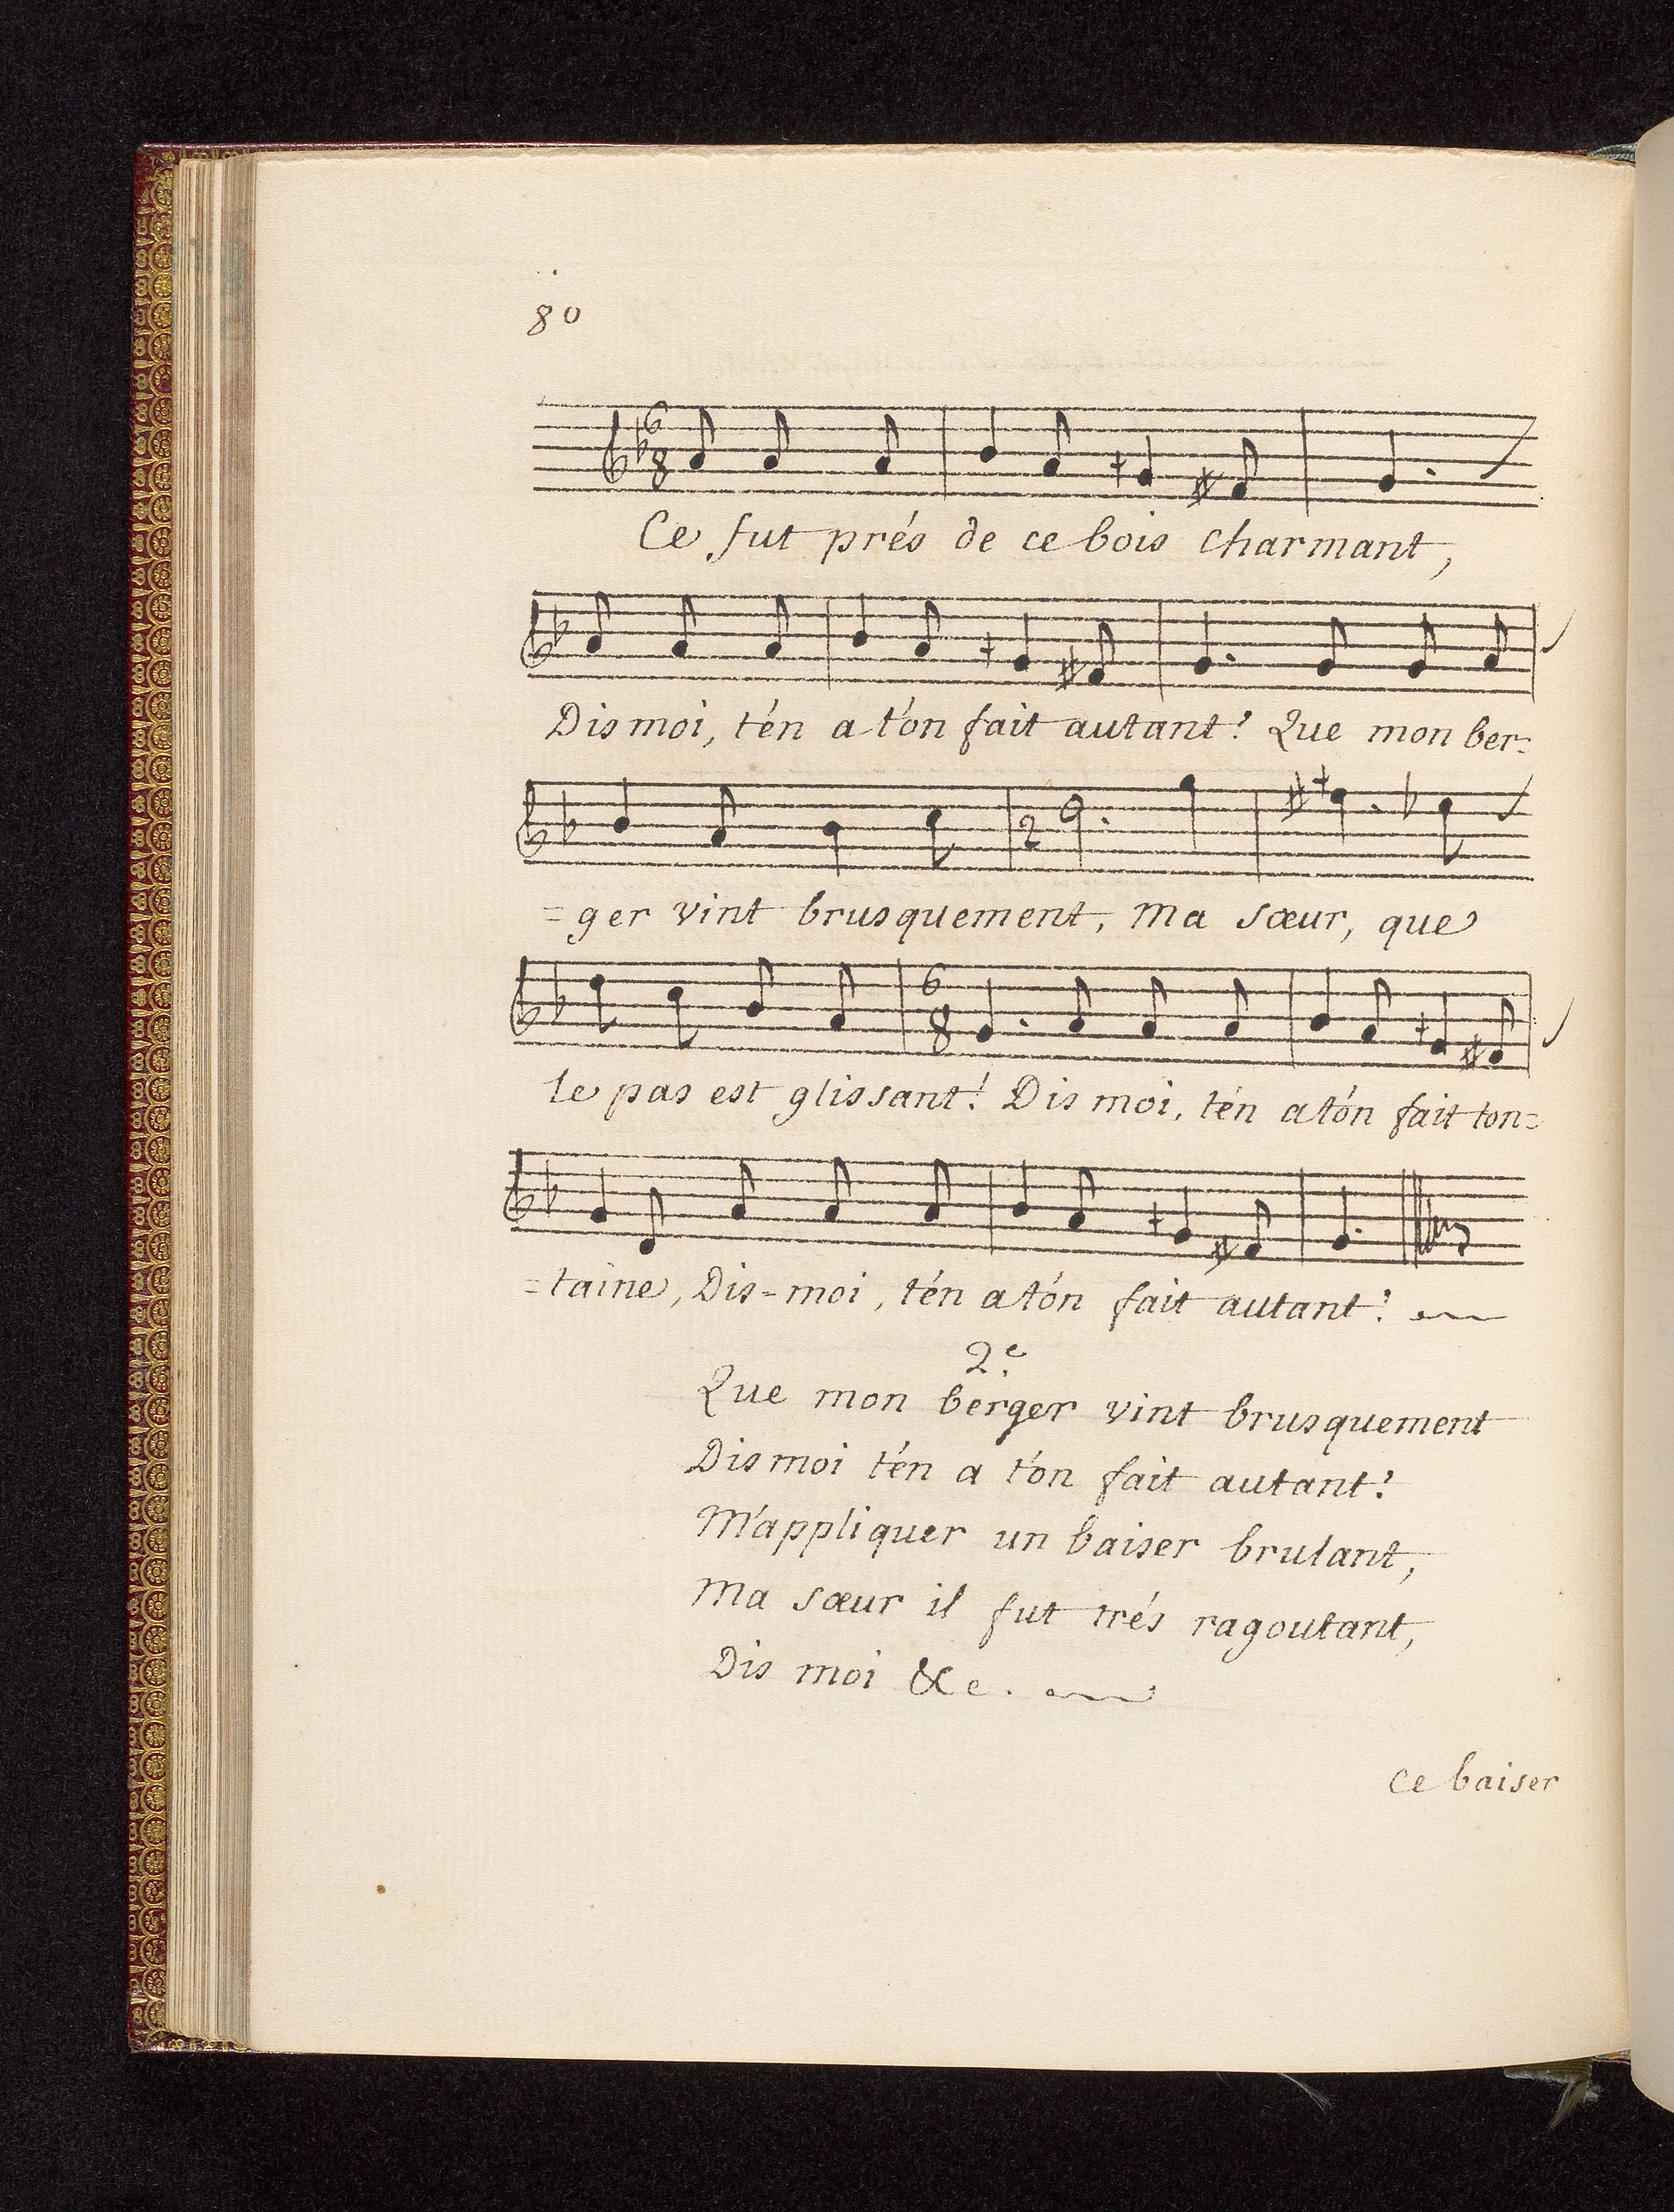 80
Ce fut prés de ce bois charmant,
Dis moi, t'én a t'on fait autant? Que mon ber=
=ger vint brusquement, Ma sœur, que
le pas est glissant! Dis moi, t'én a t'ón fait ton=
=taine, Dis-moi, t'én a t'ón fait autant?
2.e
Que mon berger vint brusquement
Dis moi t'én a t'on fait autant?
M'appliquer un baiser brulant,
Ma sœur il fut trés ragoutant,
Dis moi &c.
Ce baiser